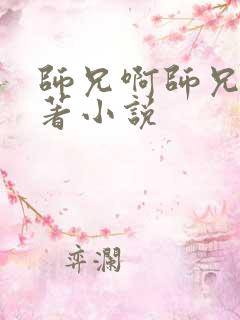 師兄啊師兄
著小説
弈瀾